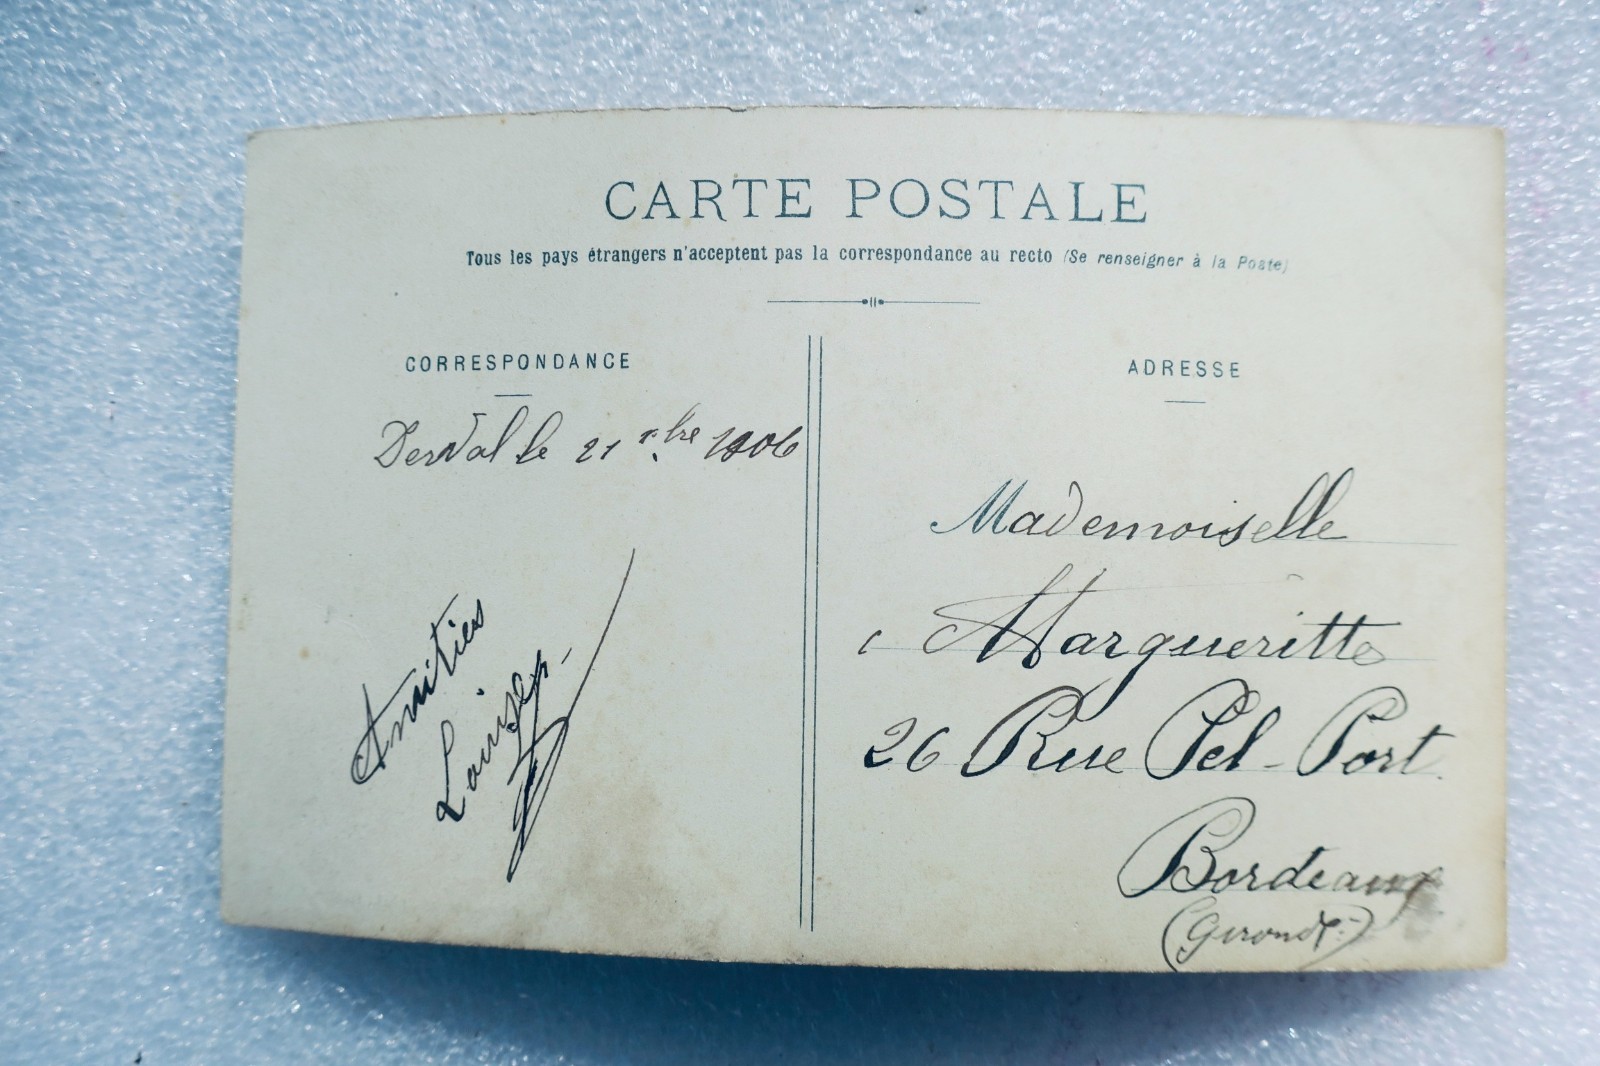 CARTE POSTALE
Tous les pays étrangers n'acceptent pas la correspondance au recto (Se renseigner à la Poste)
CORRESPONDANCE
Derval le 21 bre 1906
Amitiés
Louise
ADRESSE
Mademoiselle
Margueritte
26 Rue Pel-Port
Bordeaux
(Gironde)